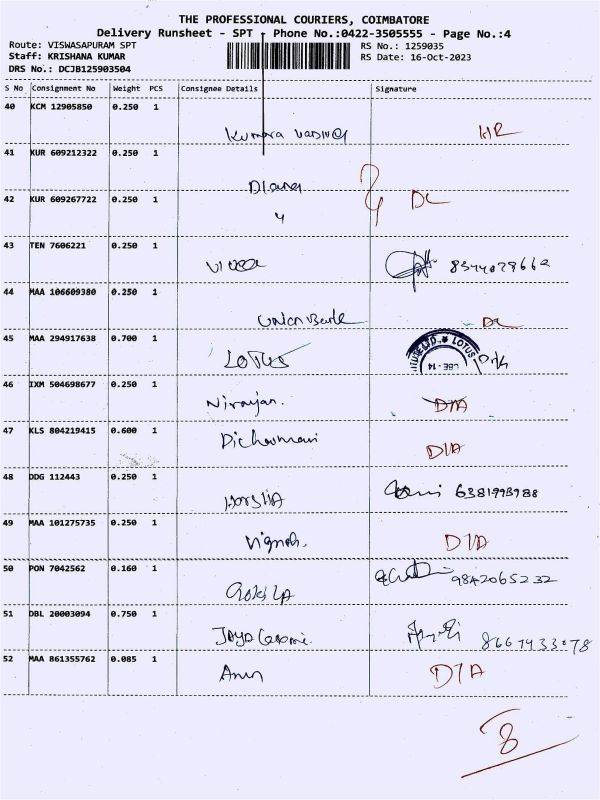 THE PROFESSIONAL COURIERS, COIMBATORE
Delivery Runsheet - SPT - Phone No.:0422-3505555 - Page No.:4
Route: VISWASAPURAM SPT
RS No.: 1259035
Staff: KRISHANA KUMAR
RS Date: 16-Oct-2023
DRS No.: DCJB125903504
S No Consignment No Weight PCS Consignee Details Signature
40 KCM 12905850 0.250 1
Kumara HR
41 KUR 609212322 0.250 1
Diana
42 KUR 609267722 0.250 1 DL
43 TEN 7606221 0.250 1
44 MAA 106609380 0.250 1
Union Bank DL
45 MAA 294917638 0.700 1
LOTUS LOTUS CBE - 14
46 IXM 504698677 0.250 1
Niranjan. D/A
47 KLS 804219415 0.600 1
D/A
48 DDG 112443 0.250 1
6381993988
49 MAA 101275735 0.250 1
Vignesh. D/A
50 PON 7042562 0.160 1
GOKILA 9842065232
51 DBL 20003094 0.750 1
8667433078
52 MAA 861355762 0.085 1
Arun D/A
8